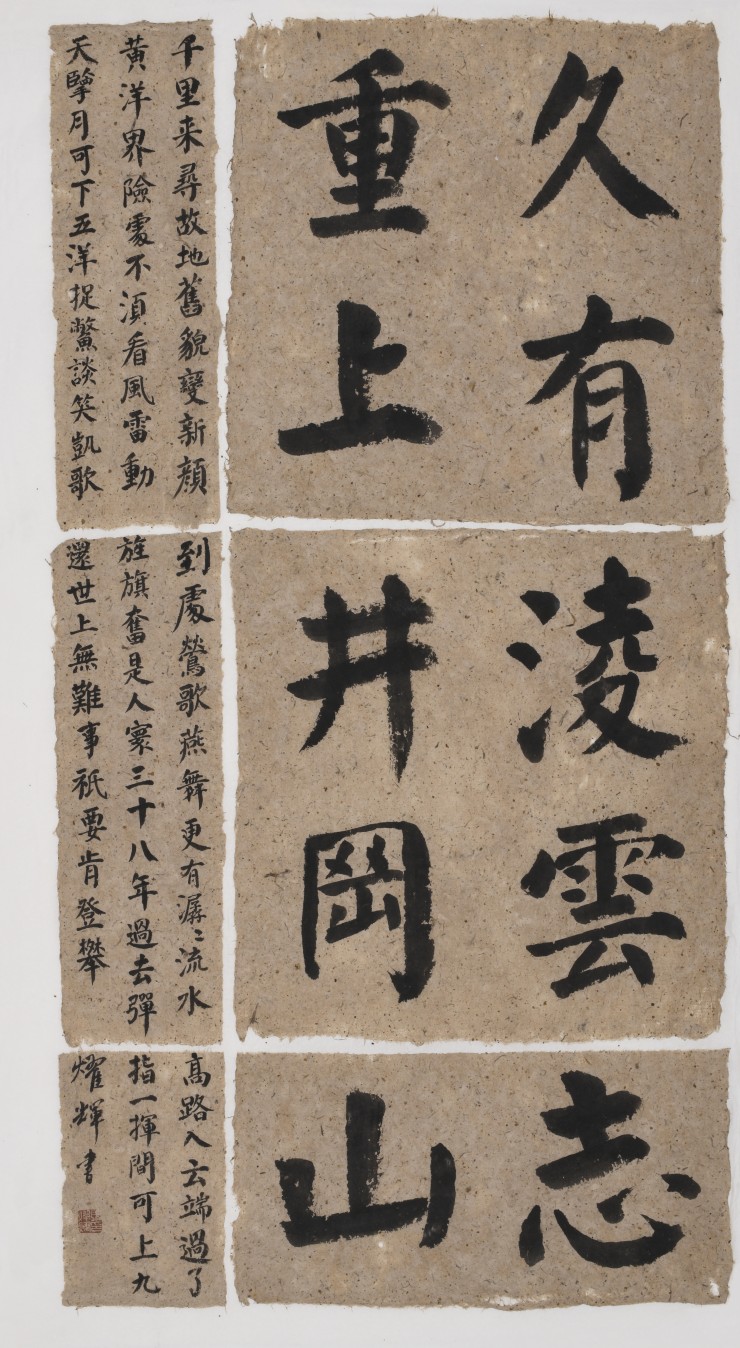 久有凌雲志
重上井岡山
千里来尋故地舊貌變新顔到處鶯歌燕舞更有潺〻流水高路入云端過了
黄洋界險處不須看風雷動旌旗奮是人寰三十八年過去彈指一揮間可上九
天擥月可下五洋捉鱉談笑凱歌還世上無難事祇要肯登攀耀輝書